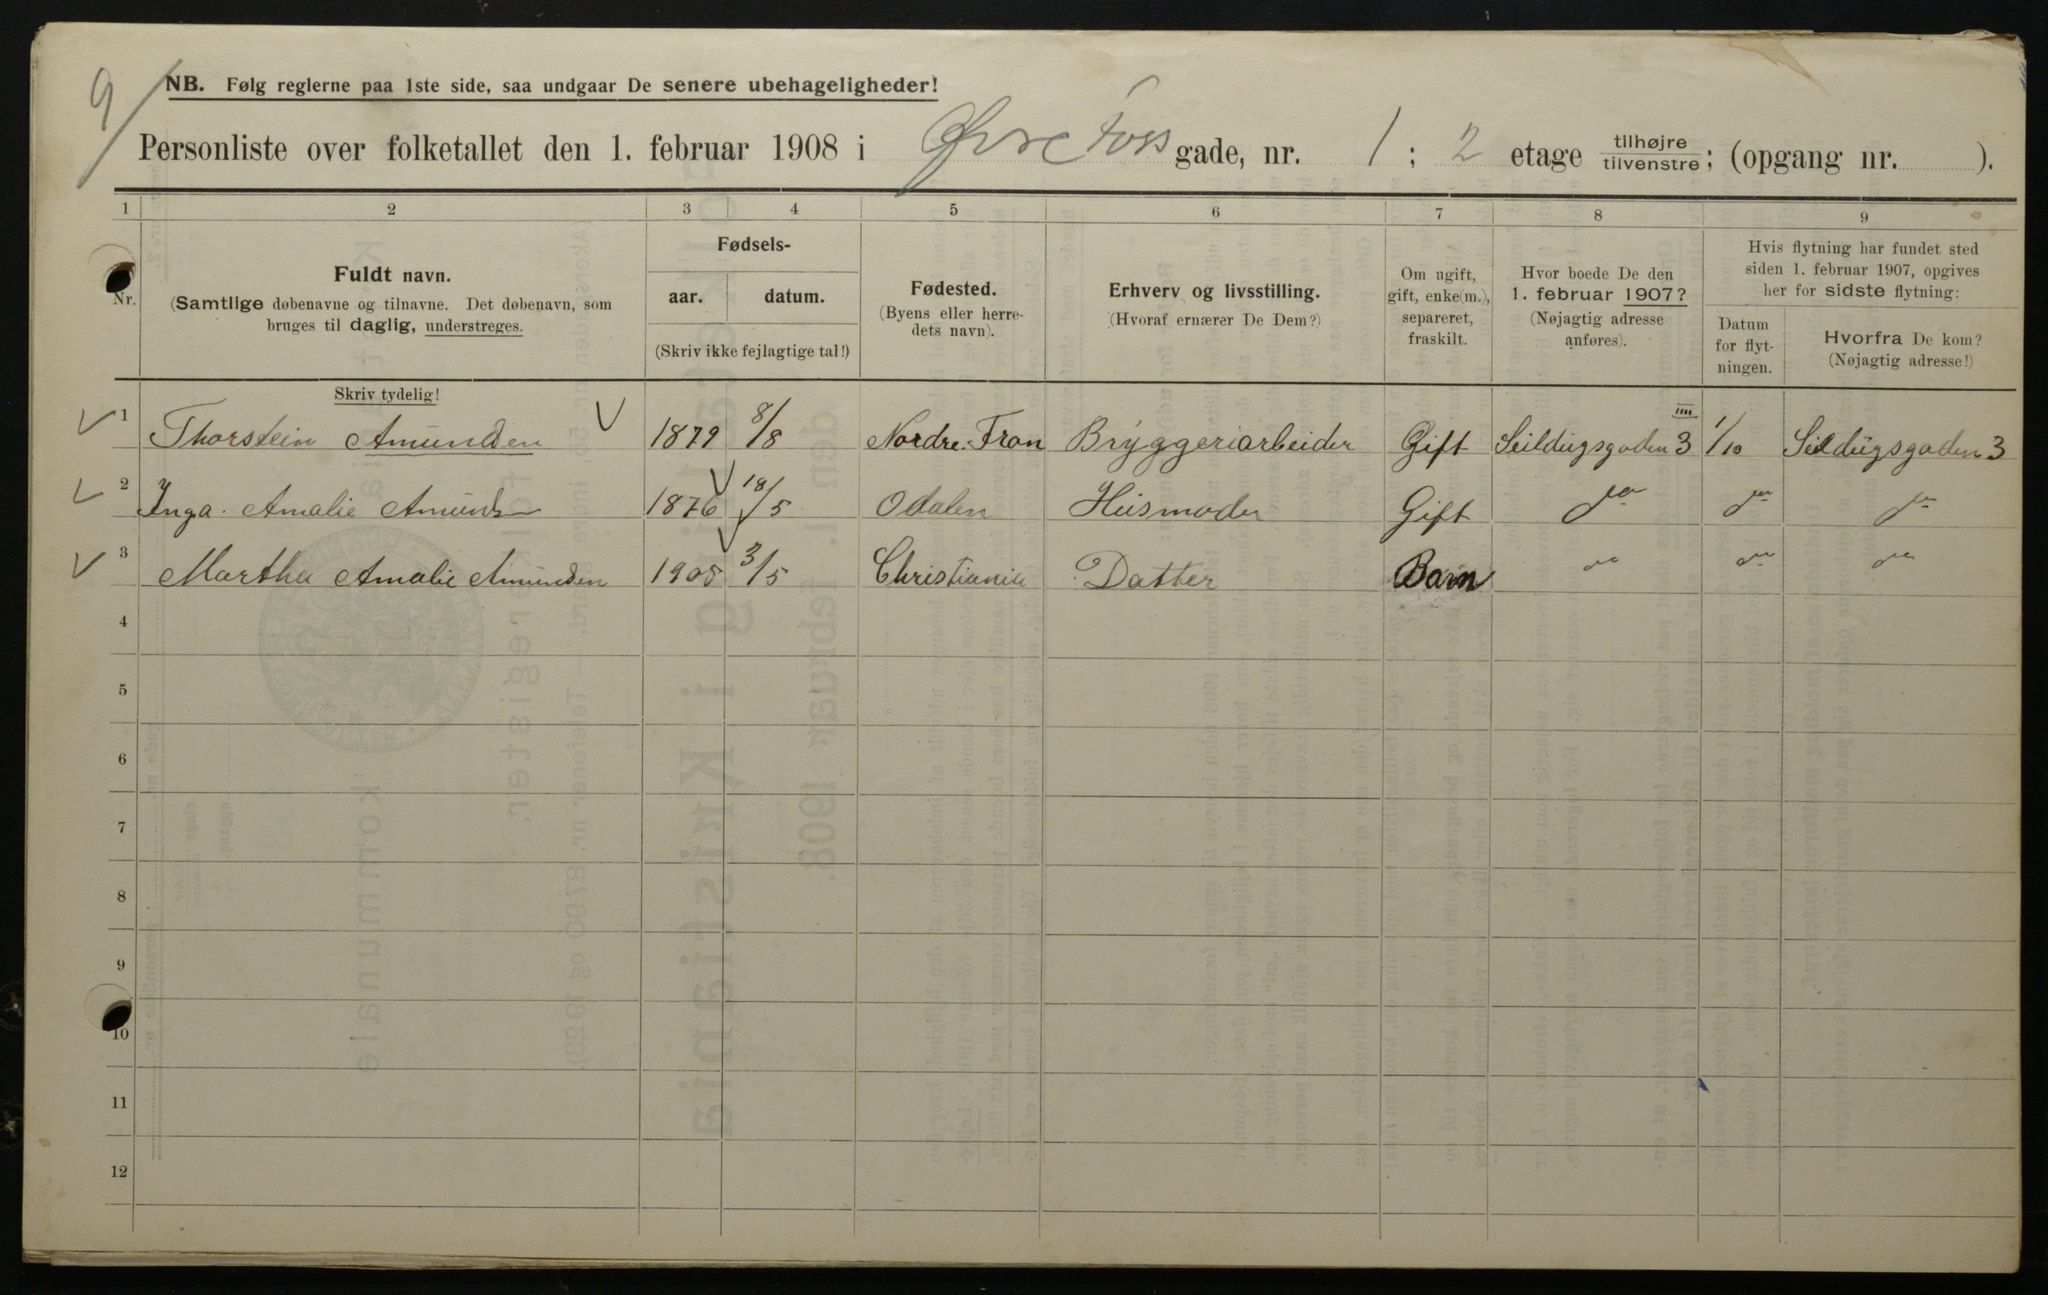 9/
NB. Følg reglerne paa 1ste side, saa undgaar De senere ubehageligheder!
Personliste over folketallet den 1. februar 1908 i Øvre Foss gade, nr. 1 ; 2 etage tilhøjre tilvenstre ; (opgang nr. ).
1 2 3 4 5 6 7 8 9
Nr.
Fuldt navn.
(Samtlige døbenavne og tilnavne. Det døbenavn, som
bruges til daglig, understreges.
Skriv tydelig!
Fødsels-
aar. datum.
(Skriv ikke fejlagtige tal!)
Fødested.
(Byens eller herre-
dets navn).
Erhverv og livsstilling.
(Hvoraf ernærer De Dem?)
Om ugift,
gift, enke(m.),
separeret,
fraskilt.
Hvor boede De den
1. februar 1907?
(Nøjagtig adresse
anføres).
Hvis flytning har fundet sted
siden 1. februar 1907, opgives
her for sidste flytning:
Datum
for flyt-
ningen.
Hvorfra De kom?
(Nøjagtig adresse!)
1 Thorstein Amunden 1879 8/8 Nordre-Fron Bryggeriarbeider Gift Seildugsgaden 3 IIII 1/10 Seildugsgaden 3
2 Inga Amalie Amunds 1876 18/5 Odalen Husmoder Gift do do do
3 Martha Amalie Amunden 1905 3/5 Christiania Datter Barn do do do
4
5
6
7
8
9
10
11
12